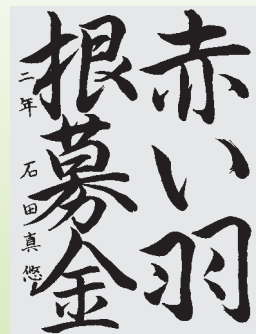 赤い羽
根募金
二年 石田真悠